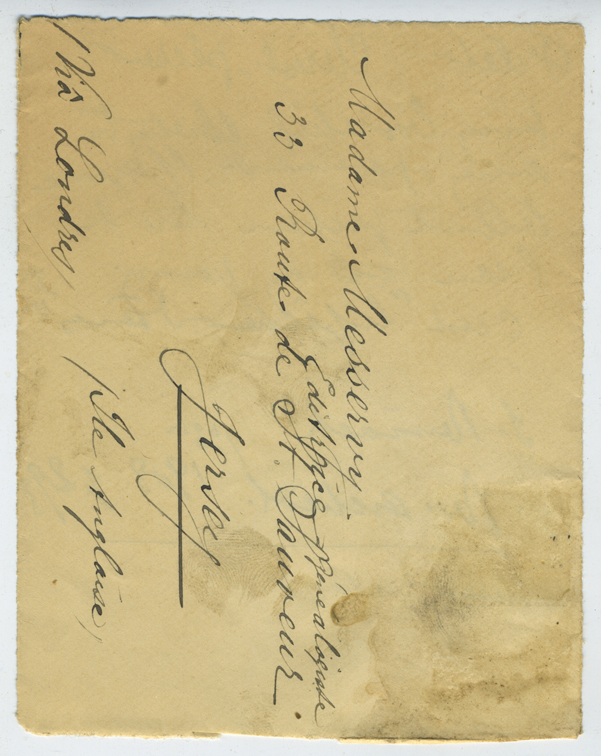 Madame Messervy.
Editrice généalogiste
33 Route de St Sauveur.
Jersey
(Via Londres)
(Ile Anglaise)